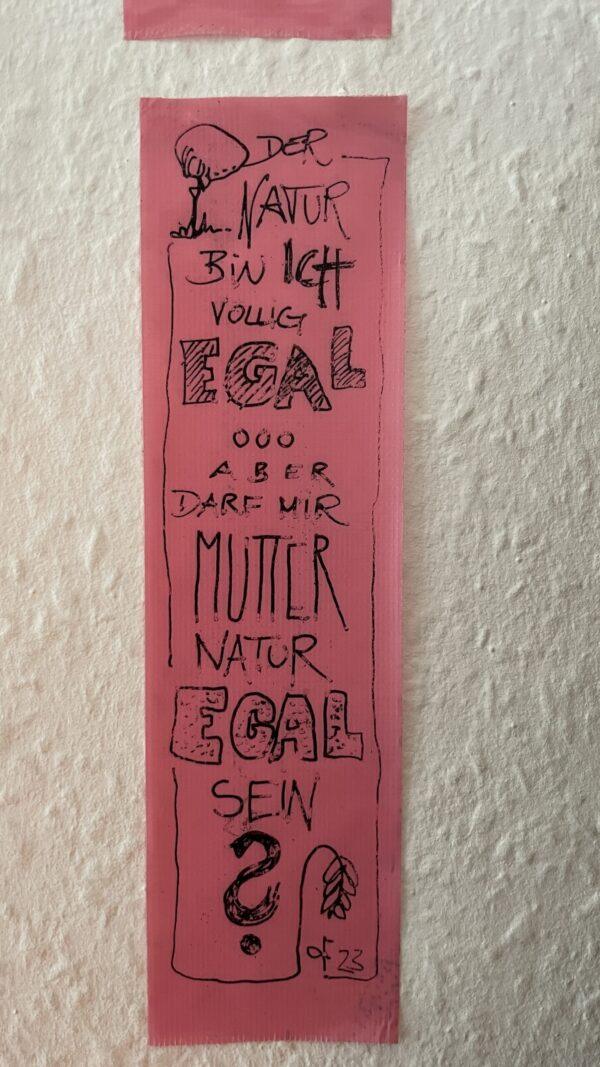 DER
NATUR
BIN ICH
VOLLIG
EGAL
ooo
ABER
DARF MIR
MUTTER
NATUR
EGAL
SEIN
?
23